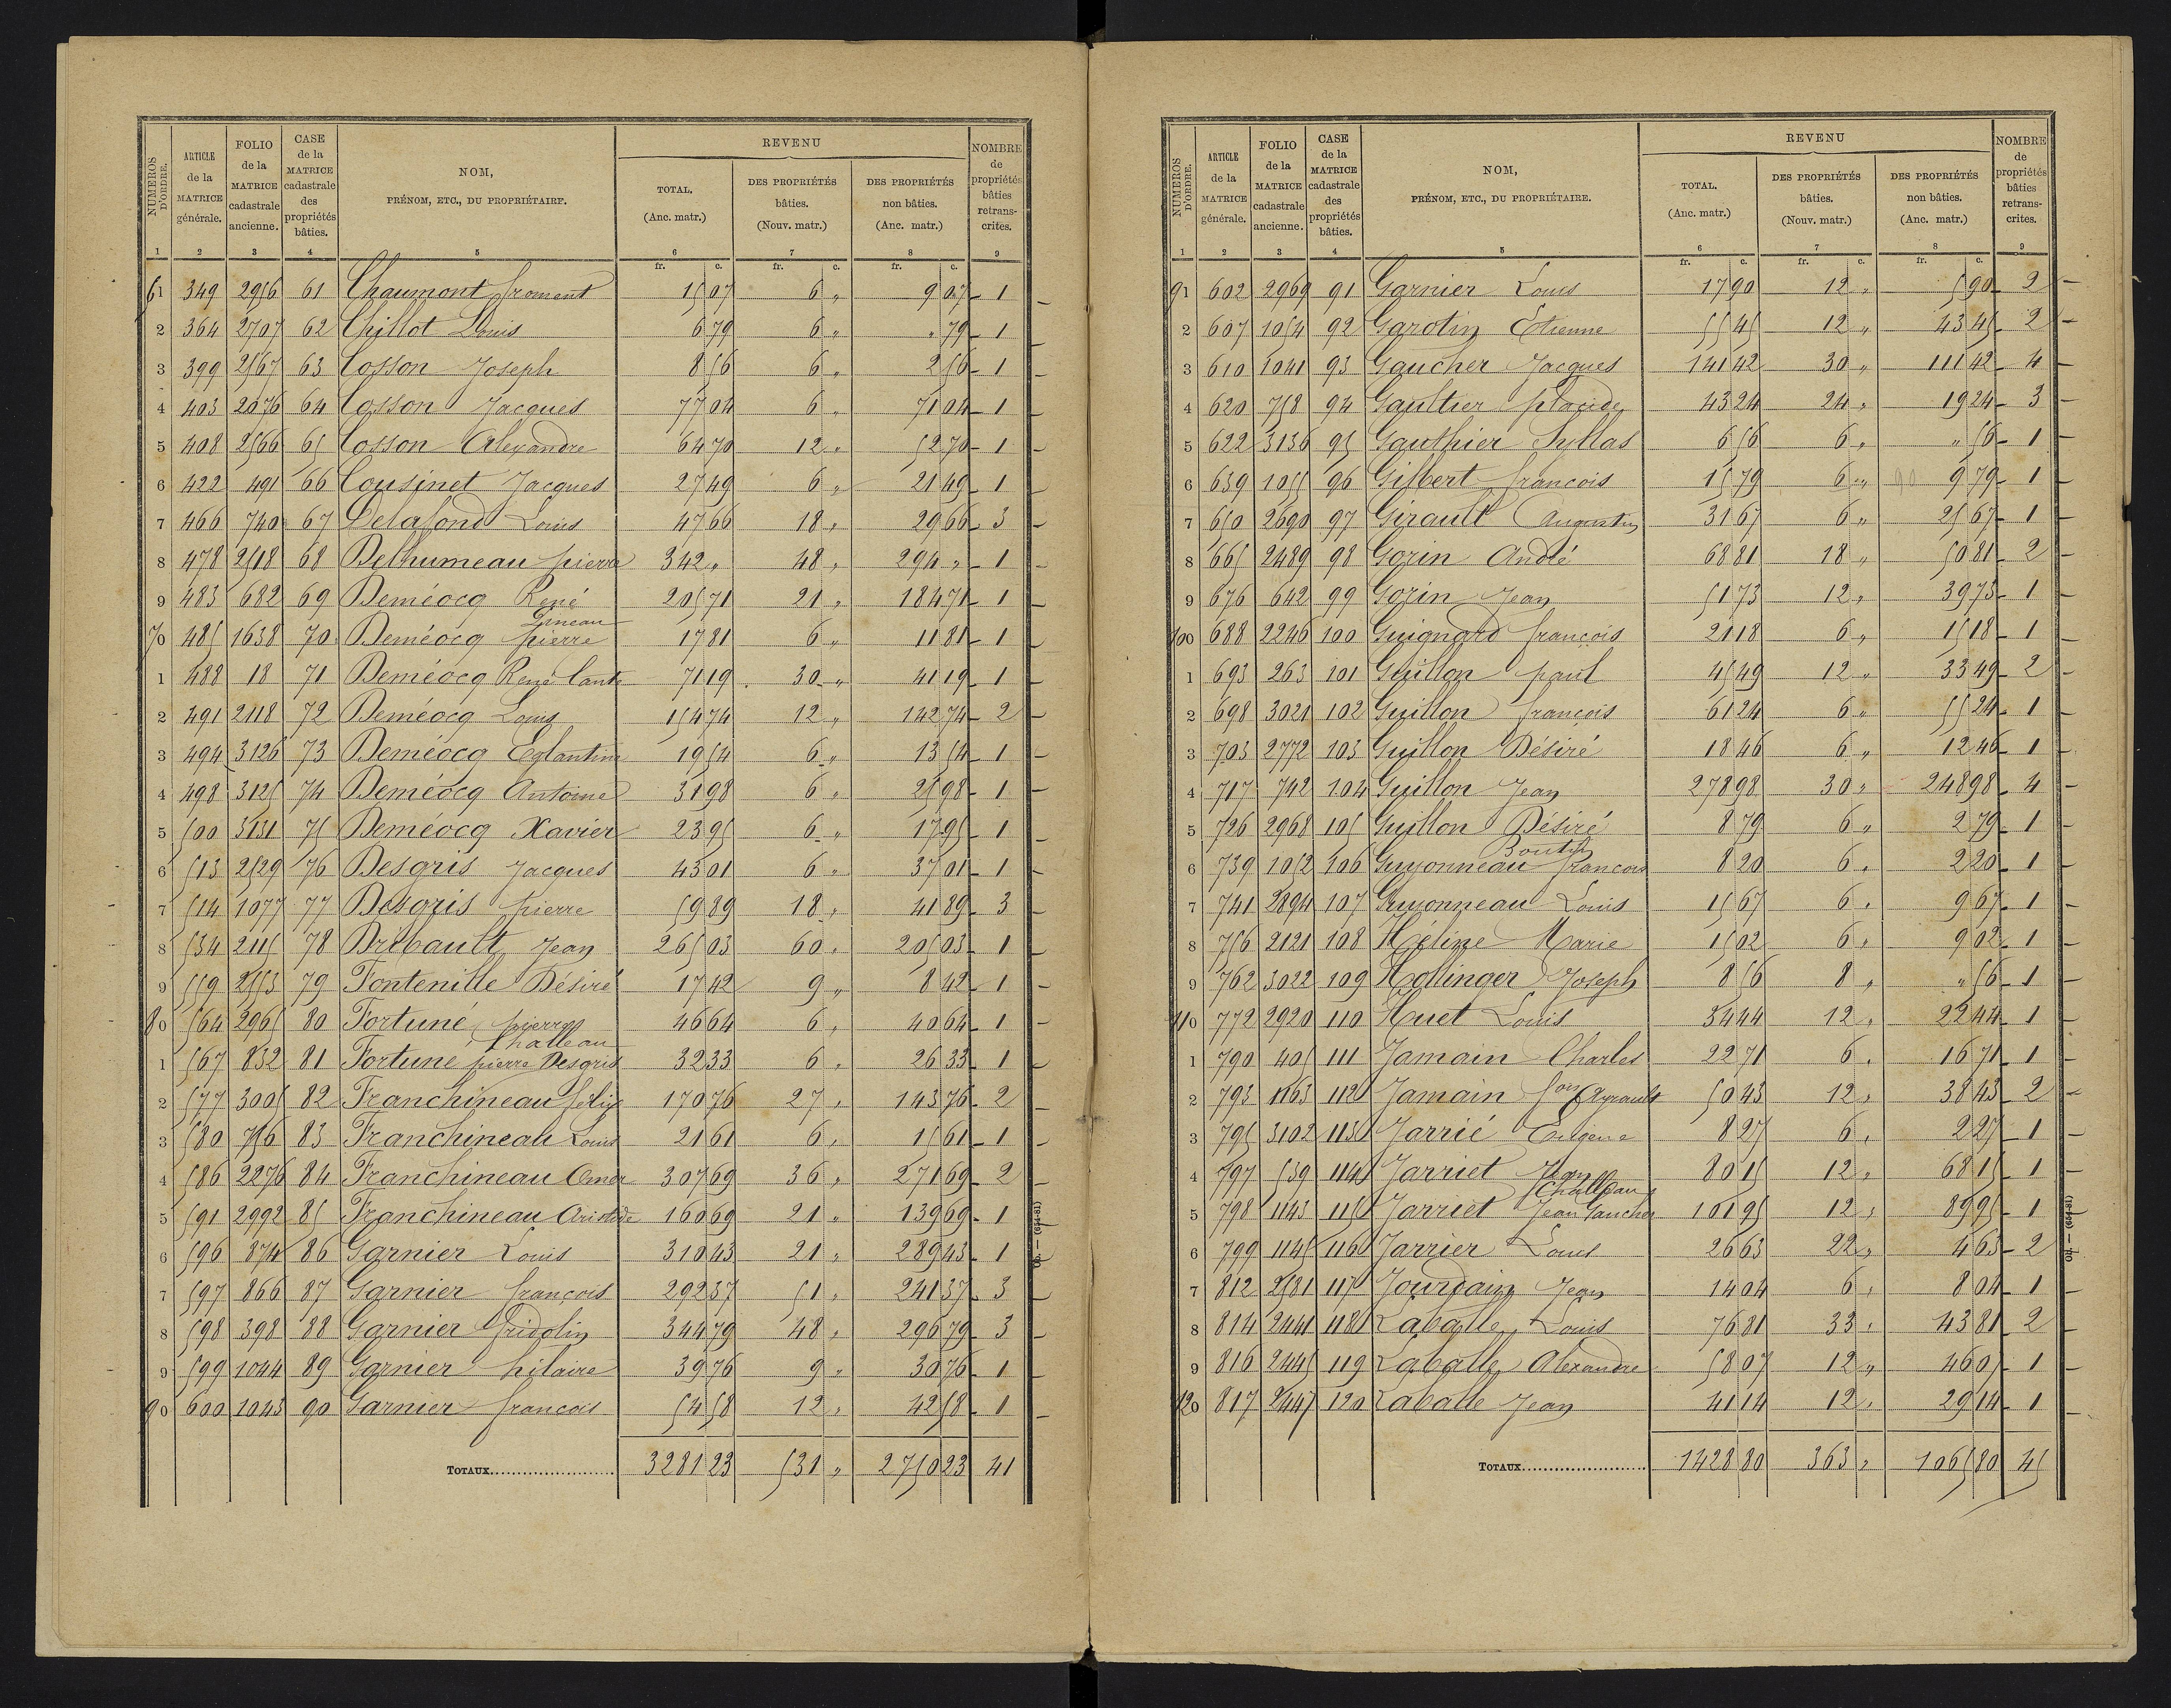 NUMÉROS D'ORDRE. | ARTICLE de la MATRICE générale. | FOLIO de la MATRICE cadastrale ancienne. | CASE de la MATRICE cadastrale des propriétés bâties. | NOM, PRÉNOM, ETC., DU PROPRIÉTAIRE. | REVENU TOTAL. (Anc. matr.) | DES PROPRIÉTÉS bâties. (Nouv. matr.) | DES PROPRIÉTÉS non bâties. (Anc. matr.) | NOMBRE de propriétés bâties retranscrites.
1 | 2 | 3 | 4 | 5 | 6 | 7 | 8 | 9
fr. c. | fr. c. | fr. c.
61 | 349 | 2956 | 61 | Chaumont froment | 15 07 | 6 " | 9 07 | 1
2 | 364 | 2707 | 62 | Chillot Louis | 6 79 | 6 " | " 79 | 1
3 | 399 | 2567 | 63 | Cosson Joseph | 8 56 | 6 " | 2 56 | 1
4 | 403 | 2076 | 64 | Cosson Jacques | 77 04 | 6 " | 71 04 | 1
5 | 408 | 2566 | 65 | Cosson Alexandre | 64 70 | 12 " | 52 70 | 1
6 | 422 | 491 | 66 | Cousinet Jacques | 27 49 | 6 " | 21 49 | 1
7 | 466 | 740 | 67 | Delafond Louis | 47 66 | 18 " | 29 66 | 3
8 | 478 | 2518 | 68 | Delhumeau pierre | 342 " | 48 " | 294 " | 1
9 | 483 | 682 | 69 | Deméocq René | 205 71 | 21 " | 184 71 | 1
70 | 485 | 1638 | 70 | Deméocq pierre | 17 81 | 6 " | 11 81 | 1
1 | 488 | 18 | 71 | Deméocq René Cante | 71 19 | 30 " | 41 19 | 1
2 | 491 | 2118 | 72 | Deméocq Louis | 154 74 | 12 " | 142 74 | 2
3 | 494 | 3126 | 73 | Deméocq Eglantine | 19 54 | 6 " | 13 54 | 1
4 | 498 | 3125 | 74 | Deméocq Antoine | 31 98 | 6 " | 25 98 | 1
5 | 500 | 3131 | 75 | Deméocq Xavier | 23 95 | 6 " | 17 95 | 1
6 | 513 | 2529 | 76 | Desgris Jacques | 43 01 | 6 " | 37 01 | 1
7 | 514 | 1077 | 77 | Desgris pierre | 59 89 | 18 " | 41 89 | 3
8 | 534 | 2115 | 78 | Dribault Jean | 265 03 | 60 " | 205 03 | 1
9 | 559 | 2553 | 79 | Fontenille Désiré | 17 42 | 9 " | 8 42 | 1
80 | 564 | 2965 | 80 | Fortuné pierre | 46 64 | 6 " | 40 64 | 1
Challeau
1 | 567 | 832 | 81 | Fortuné pierre Desgris | 32 33 | 6 " | 26 33 | 1
2 | 577 | 3005 | 82 | Franchineau félix | 170 76 | 27 " | 143 76 | 2
3 | 580 | 756 | 83 | Franchineau Louis | 21 61 | 6 " | 15 61 | 1
4 | 586 | 2276 | 84 | Franchineau Omer | 307 69 | 36 " | 271 69 | 2
5 | 591 | 2992 | 85 | Franchineau Aristide | 160 69 | 21 " | 139 69 | 1
6 | 596 | 874 | 86 | Garnier Louis | 310 43 | 21 " | 289 43 | 1
7 | 597 | 866 | 87 | Garnier françois | 292 37 | 51 " | 241 37 | 3
8 | 598 | 398 | 88 | Garnier fridolin | 344 79 | 48 " | 296 79 | 3
9 | 599 | 1044 | 89 | Garnier hilaire | 39 76 | 9 " | 30 76 | 1
90 | 600 | 1043 | 90 | Garnier francois | 54 58 | 12 " | 42 58 | 1
TOTAUX | 3281 23 | 531 " | 2750 23 | 41
Od. — (654-81)
NUMÉROS D'ORDRE. | ARTICLE de la MATRICE générale. | FOLIO de la MATRICE cadastrale ancienne. | CASE de la MATRICE cadastrale des propriétés bâties. | NOM, PRÉNOM, ETC., DU PROPRIÉTAIRE. | REVENU TOTAL. (Anc. matr.) | DES PROPRIÉTÉS bâties. (Nouv. matr.) | DES PROPRIÉTÉS non bâties. (Anc. matr.) | NOMBRE de propriétés bâties retranscrites.
1 | 2 | 3 | 4 | 5 | 6 | 7 | 8 | 9
fr. c. | fr. c. | fr. c.
91 | 602 | 2969 | 91 | Garnier Louis | 17 90 | 12 " | 5 90 | 2
2 | 607 | 1054 | 92 | Garotin Etienne | 55 45 | 12 " | 43 45 | 2
3 | 610 | 1041 | 93 | Gaucher Jacques | 141 42 | 30 " | 111 42 | 4
4 | 620 | 758 | 94 | Gaultier placide | 43 24 | 24 " | 19 24 | 3
5 | 622 | 3136 | 95 | Gauthier Syllas | 6 56 | 6 " | " 56 | 1
6 | 639 | 1055 | 96 | Gilbert françois | 15 79 | 6 " | 9 79 | 1
7 | 650 | 2690 | 97 | Girault Augustin | 31 67 | 6 " | 25 67 | 1
8 | 665 | 2489 | 98 | Gorin André | 68 81 | 18 " | 50 81 | 2
9 | 676 | 642 | 99 | Gorin Jean | 51 73 | 12 " | 39 73 | 1
100 | 688 | 2246 | 100 | Guignard françois | 21 18 | 6 " | 15 18 | 1
1 | 693 | 263 | 101 | Guillon paul | 45 49 | 12 " | 33 49 | 2
2 | 698 | 3021 | 102 | Guillon françois | 61 24 | 6 " | 55 24 | 1
3 | 703 | 2772 | 103 | Guillon Désiré | 18 46 | 6 " | 12 46 | 1
4 | 717 | 742 | 104 | Guillon Jean | 278 98 | 30 " | 248 98 | 4
5 | 726 | 2968 | 105 | Guillon Désiré | 8 79 | 6 " | 2 79 | 1
Boutin
6 | 739 | 1052 | 106 | Guyonneau francois | 8 20 | 6 " | 2 20 | 1
7 | 741 | 2894 | 107 | Guyonneau Louis | 15 67 | 6 " | 9 67 | 1
8 | 756 | 2121 | 108 | Héline Marie | 15 02 | 6 " | 9 02 | 1
9 | 762 | 3022 | 109 | Hollinger Joseph | 8 56 | 8 " | " 56 | 1
110 | 772 | 2920 | 110 | Huet Louis | 34 44 | 12 " | 22 44 | 1
1 | 790 | 405 | 111 | Jamain Charles | 22 71 | 6 " | 16 71 | 1
2 | 793 | 1163 | 112 | Jamain fois Ayrault | 50 43 | 12 " | 38 43 | 2
3 | 795 | 3102 | 113 | Jarrié Eugène | 8 27 | 6 " | 2 27 | 1
4 | 797 | 539 | 114 | Jarriet Jean | 80 15 | 12 " | 68 15 | 1
Challeau
5 | 798 | 1143 | 115 | Jarriet Jean Gaucher | 101 95 | 12 " | 89 95 | 1
6 | 799 | 1145 | 116 | Jarrier Louis | 26 63 | 22 " | 4 63 | 2
7 | 812 | 2581 | 117 | Jourdain Jean | 14 04 | 6 " | 8 04 | 1
8 | 814 | 2441 | 118 | Laballe Louis | 76 81 | 33 " | 43 81 | 2
9 | 816 | 2445 | 119 | Laballe Alexandre | 58 07 | 12 " | 46 07 | 1
120 | 817 | 2447 | 120 | Laballe Jean | 41 14 | 12 " | 29 14 | 1
TOTAUX | 1428 80 | 363 " | 1065 80 | 45
Od. — (654-81)